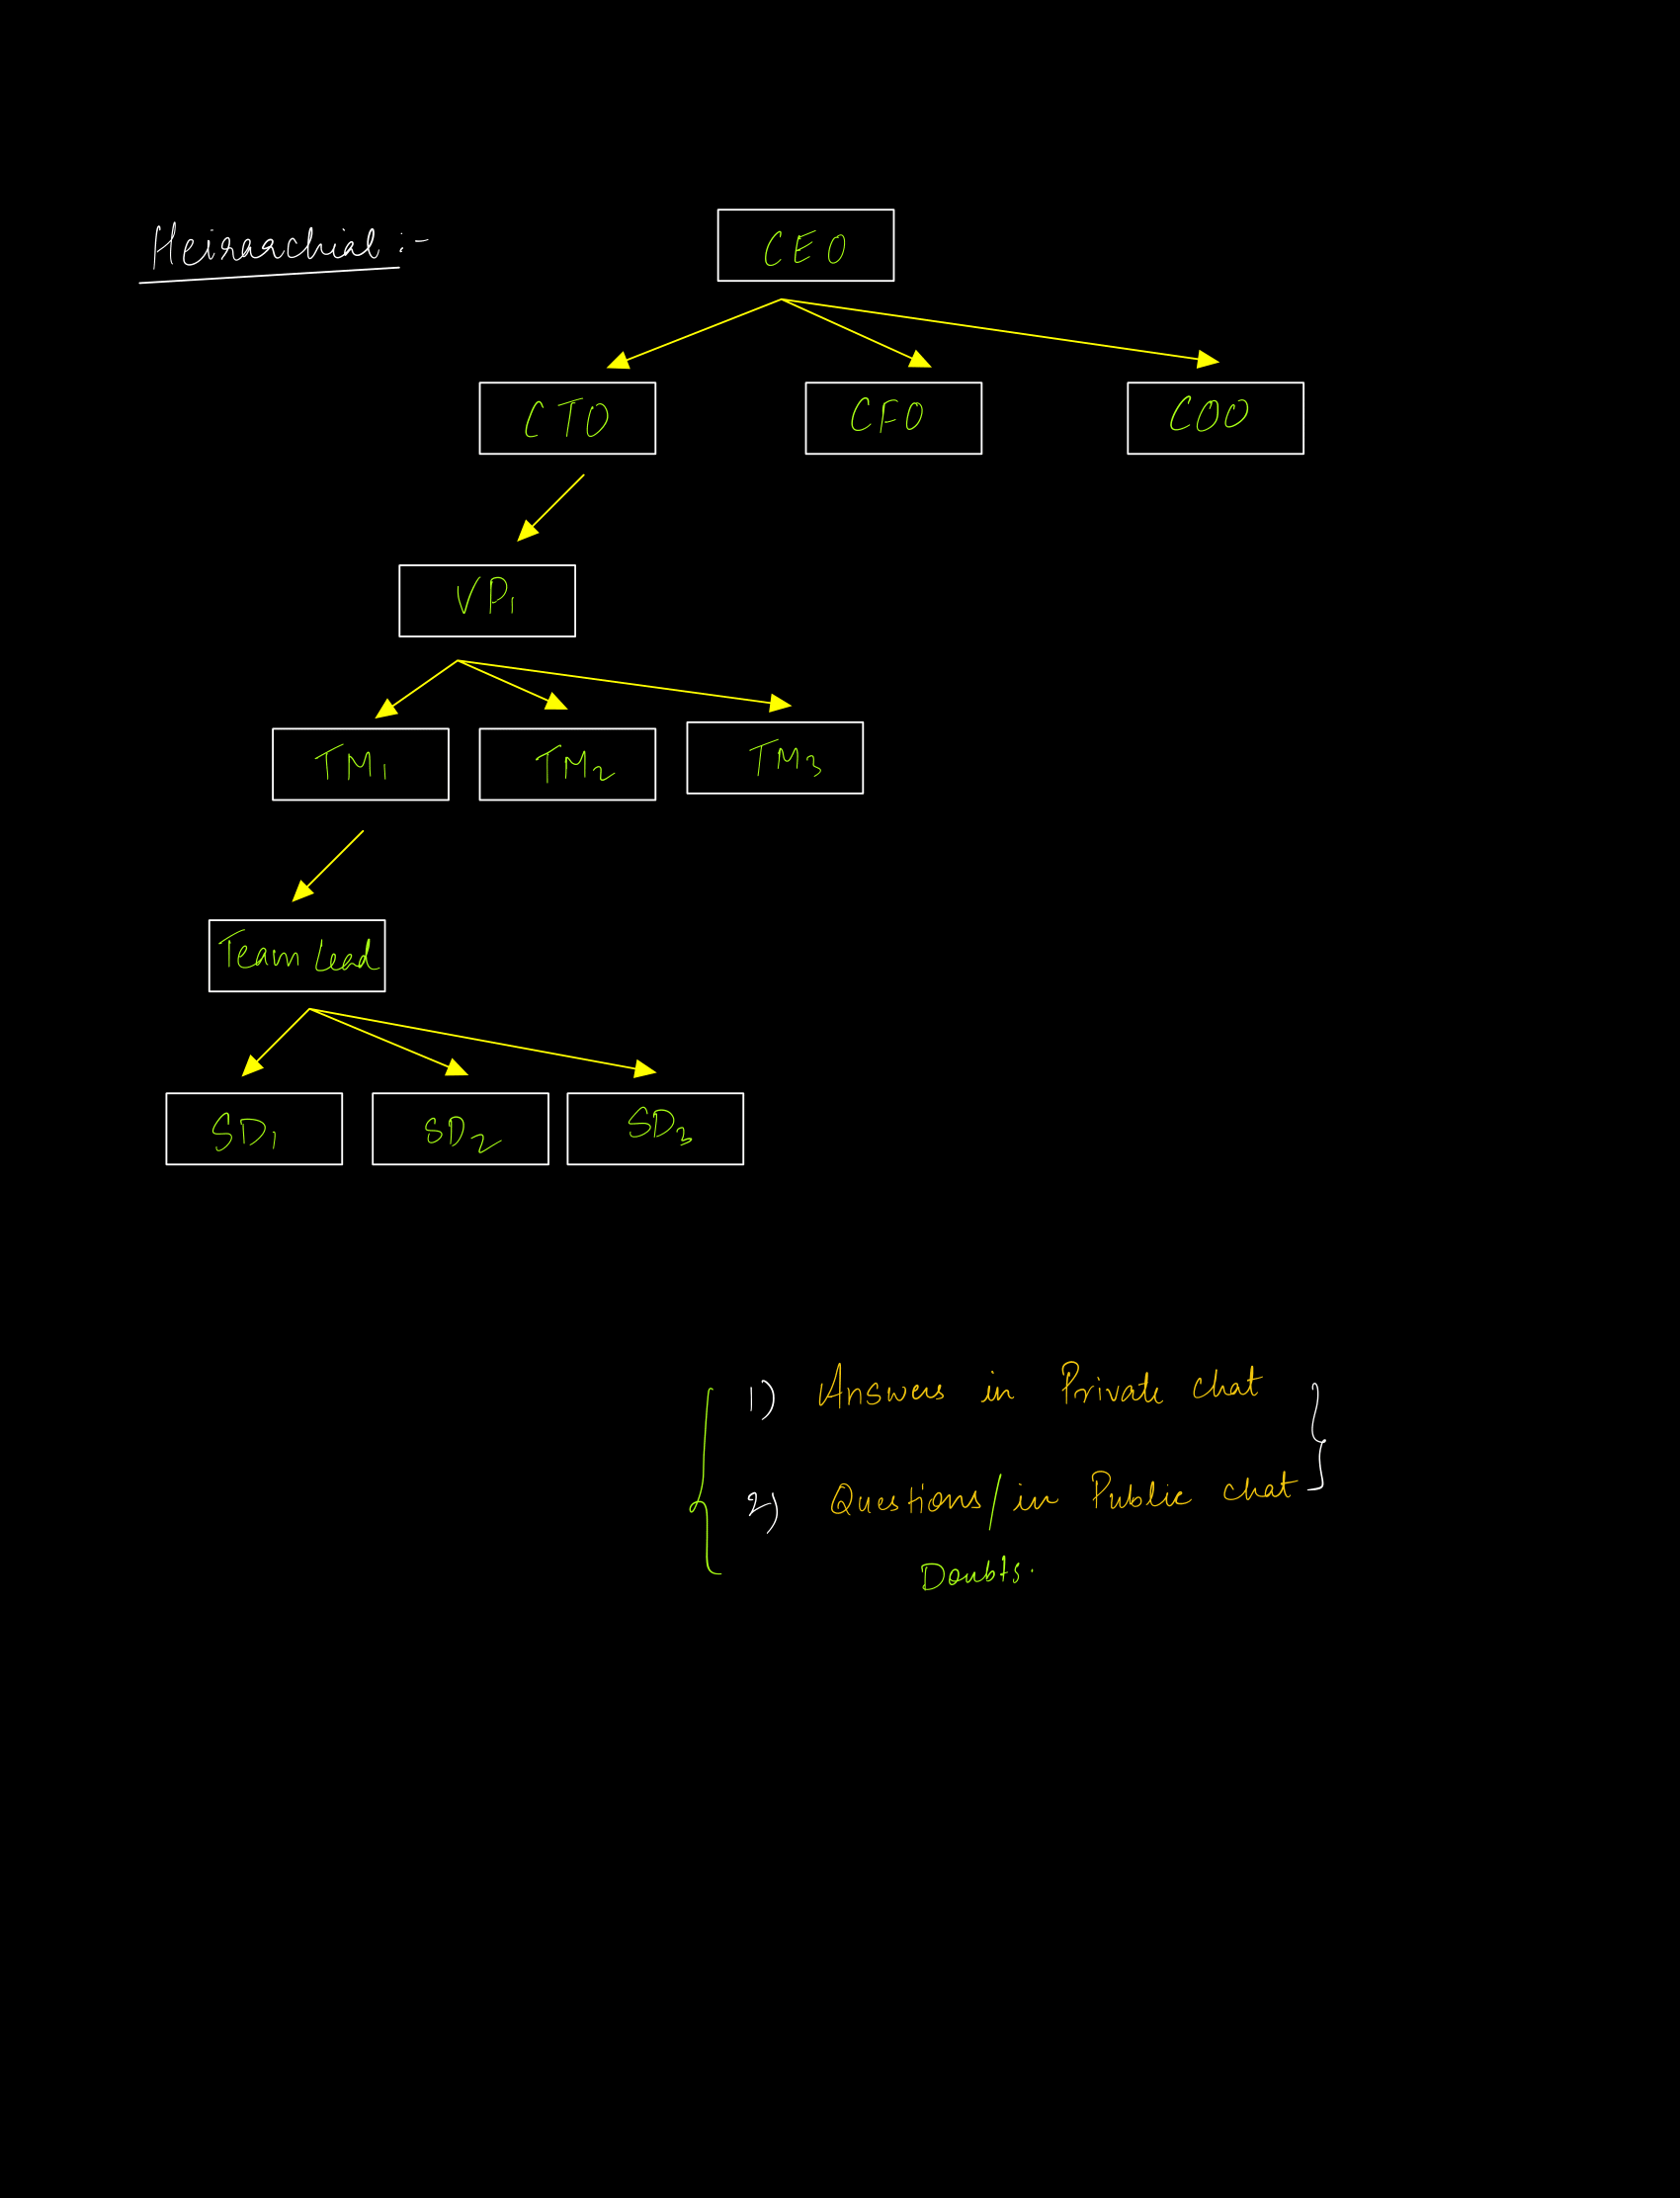 Heirarchial :-
CEO
CTO CFO COO
VP1
TM1 TM2 TM3
Team Lead
SD1 SD2 SD3
1) Answers in Private chat
2) Questions/ in Public chat
Doubts.